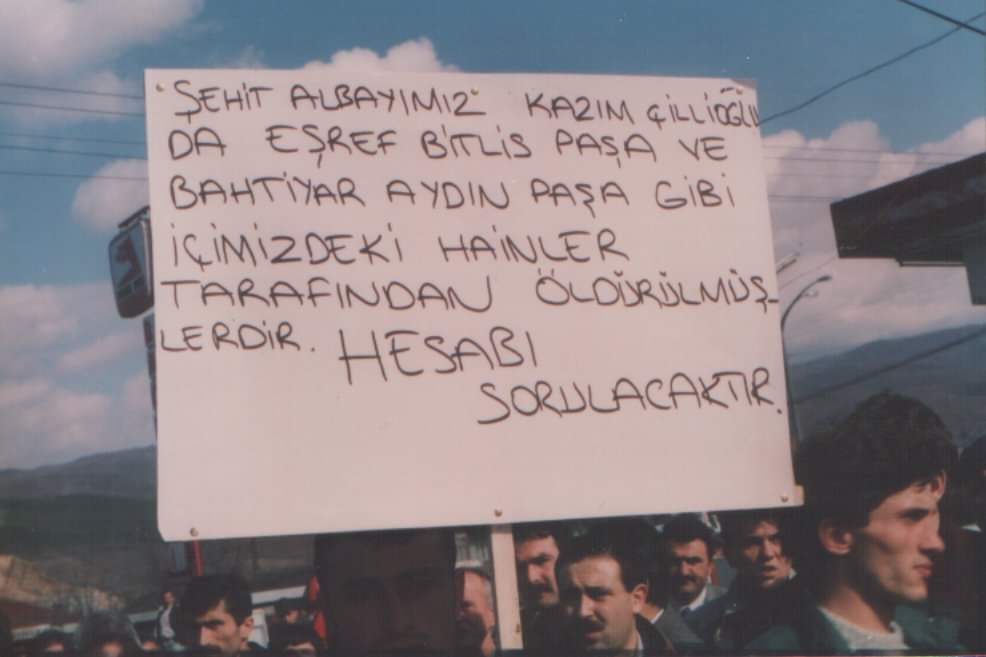 ŞEHİT ALBAYIMIZ KAZIM ÇİLLİOĞLU
DA EŞREF BİTLİS PAŞA VE
BAHTİYAR AYDIN PAŞA GİBİ
İÇİMİZDEKİ HAİNLER
TARAFINDAN ÖLDÜRÜLMÜŞ-
LERDİR. HESABI
SORULACAKTIR.